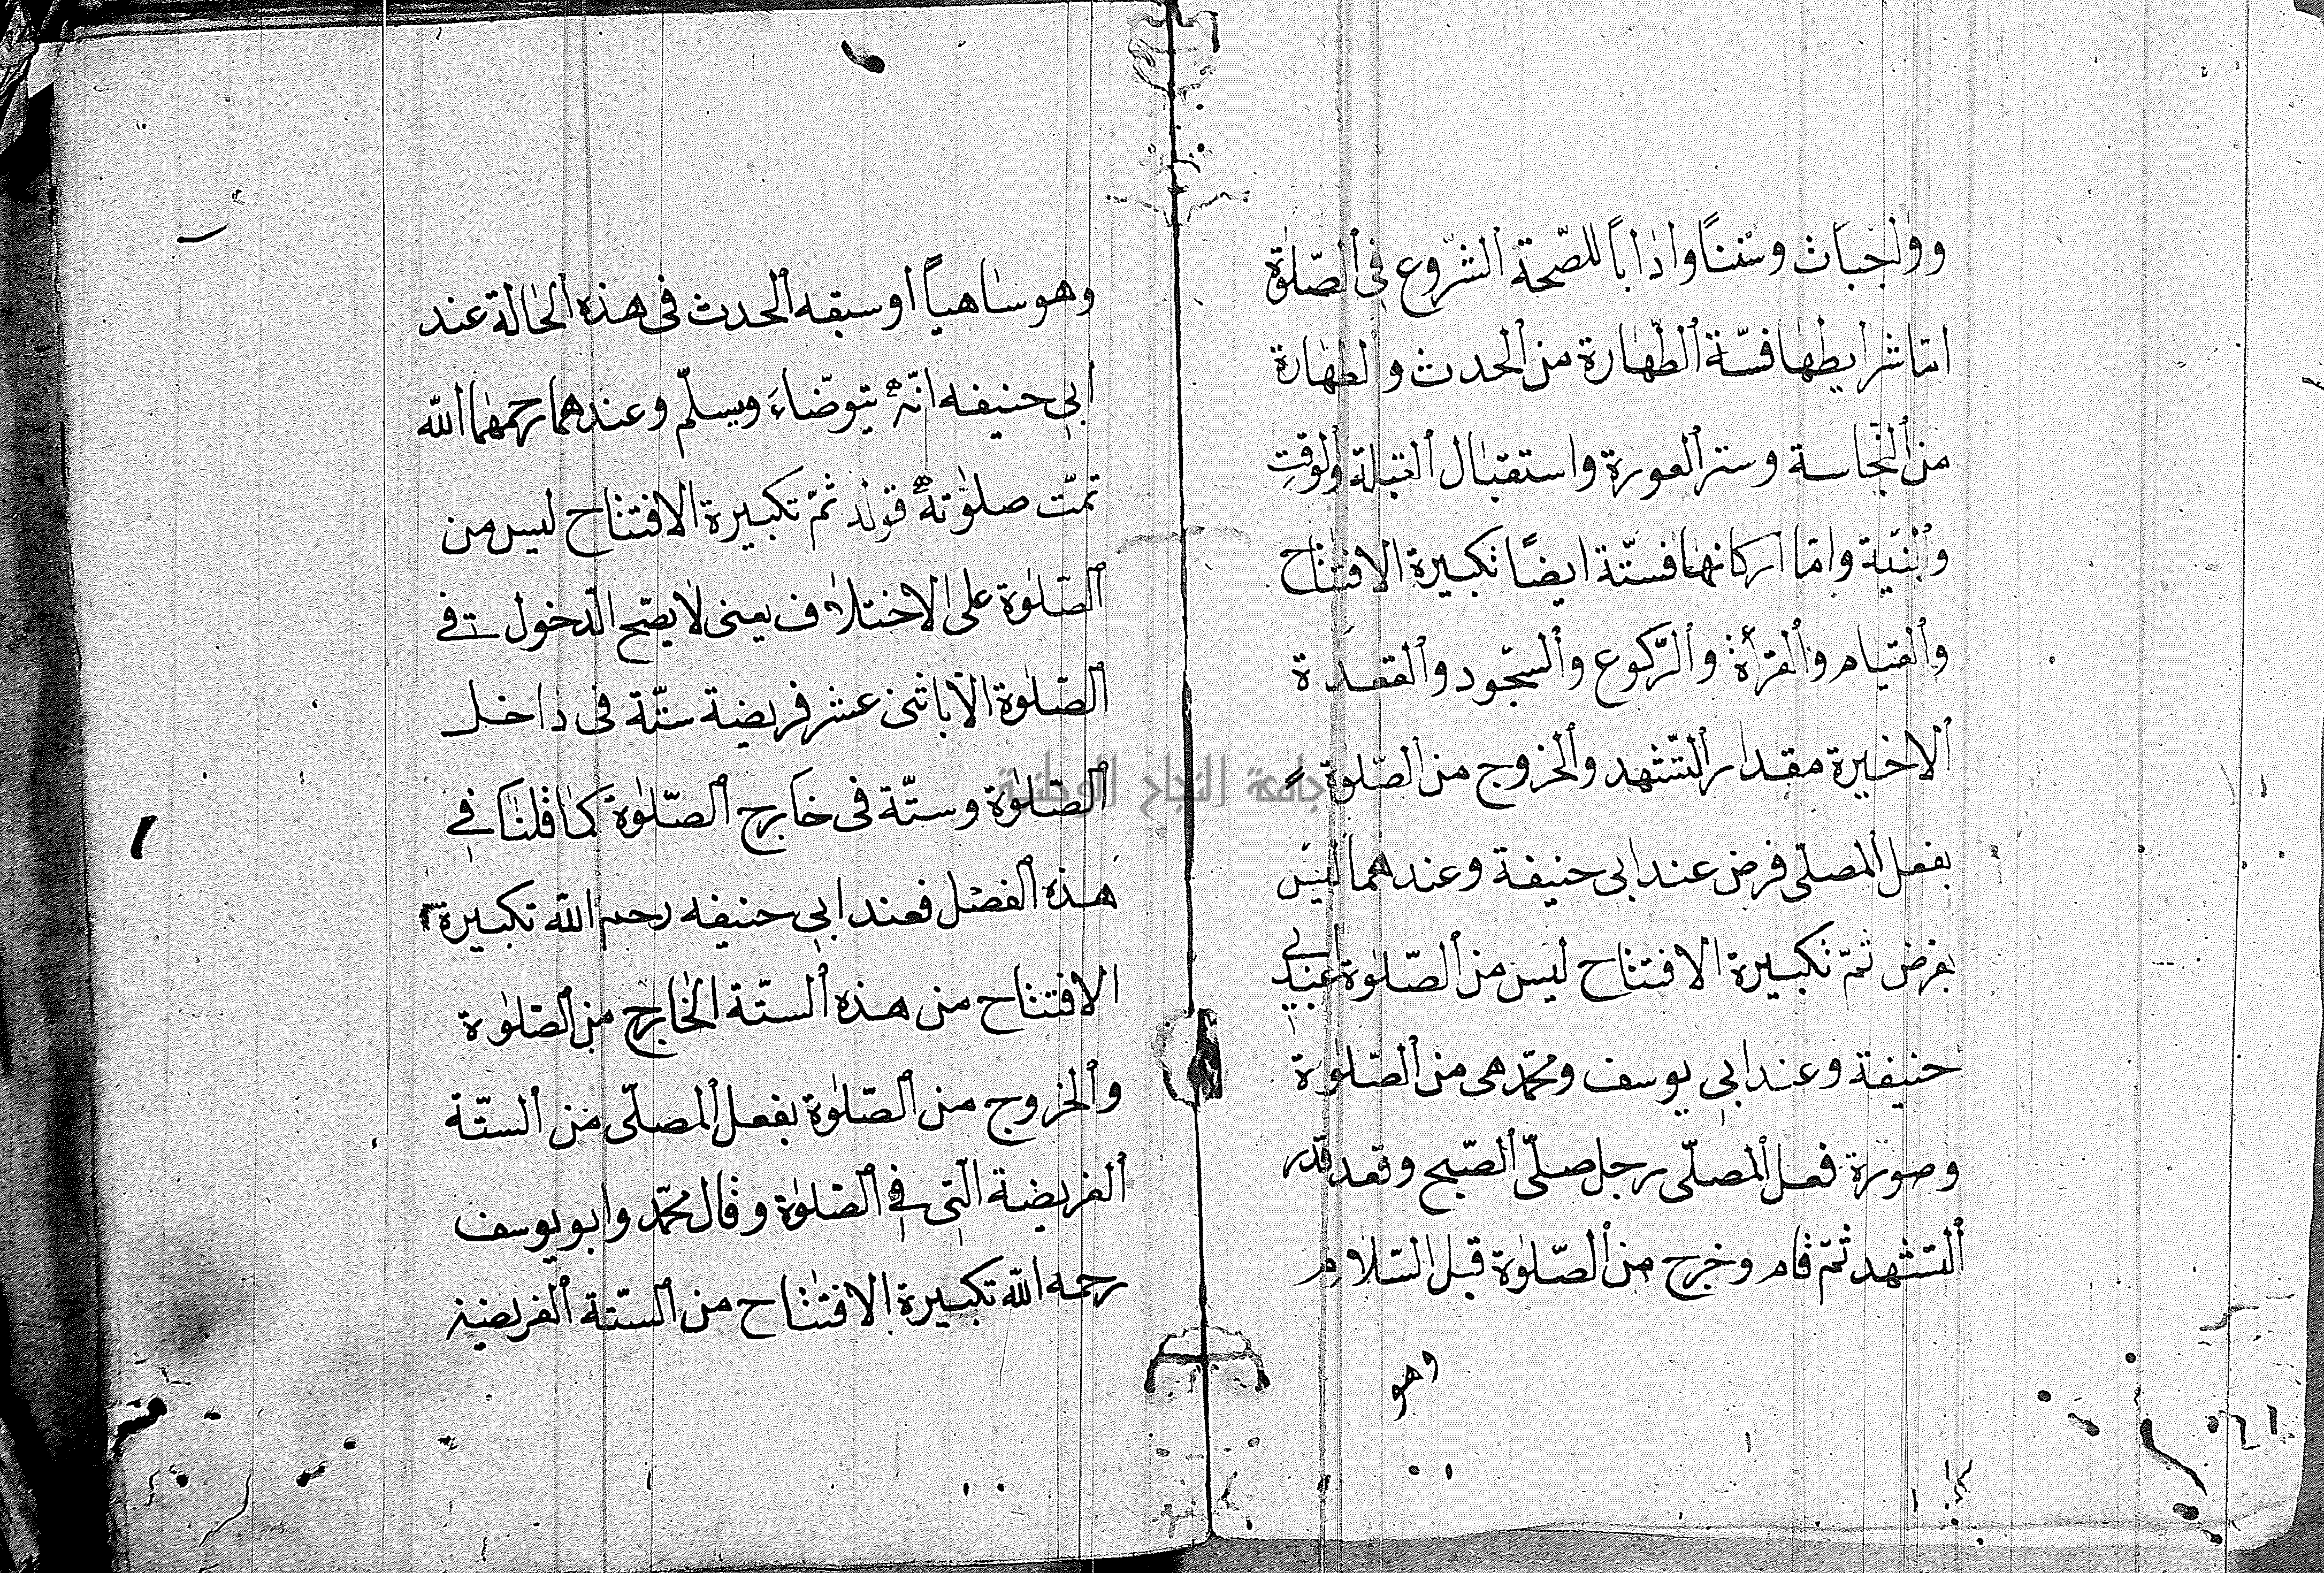 وواجبات وسننًا واداباً للصّحة الشّروع فى الصّلوٰة
امّا شرايطها فستّة الطّهارة من الحدث والطهارة
من النّجاسة وستر العورة واستقبال القبلة والوقت
والنيّة وامّا اركانها فستّة ايضًا تكبيرة الافتتاح
والقيام والقرأة والرّكوع والسّجود والقعدة
الاخيرة مقدار التّشهد والخروج من الصّلوة
بفعل المصلى فرض عند ابى حنيفة وعندهما ليس
بفرض ثمّ تكبيرة الافتتاح ليس من الصّلوٰة عند ابى
حنيفة وعند ابى يوسف ومحمّد هى من الصّلوٰة
وصورة فعل المصلّى رجل صلّى الصّبح وقعد قدر
التشهد ثمّ قام وخرج من الصّلوٰة قبل السّلام
وهو
وهو ساهياً اوسبقه الحدث فى هذه الحالة عند
ابى حنيفه انّه يتوضّاء ويسلّم وعندهما رحمهما الله
تمّت صلوٰته قوله ثمّ تكبيرة الافتتاح ليس من
الصّلوٰة على الاختلاف يعنى لا يصّح الدّخول فى
الصّلوٰة الّا باثنى عشر فريضة ستّة فى داخل
الصّلوٰة وستّة فى خارج الصّلوٰة كما قلنا فى
هذه الفصل فعند ابى حنيفه رحمه الله تكبيرة
الافتتاح من هذه الستّة الخارج من الصّلوٰة
والخروج من الصّلوٰة بفعل المصلّى من الستّة
الفريضة الّتى فى الصّلوٰة وقال محمّد وابويوسف
رحمه الله تكبيرة الافتتاح من الستّة الفريضية
جامعة النجاح الوطنية